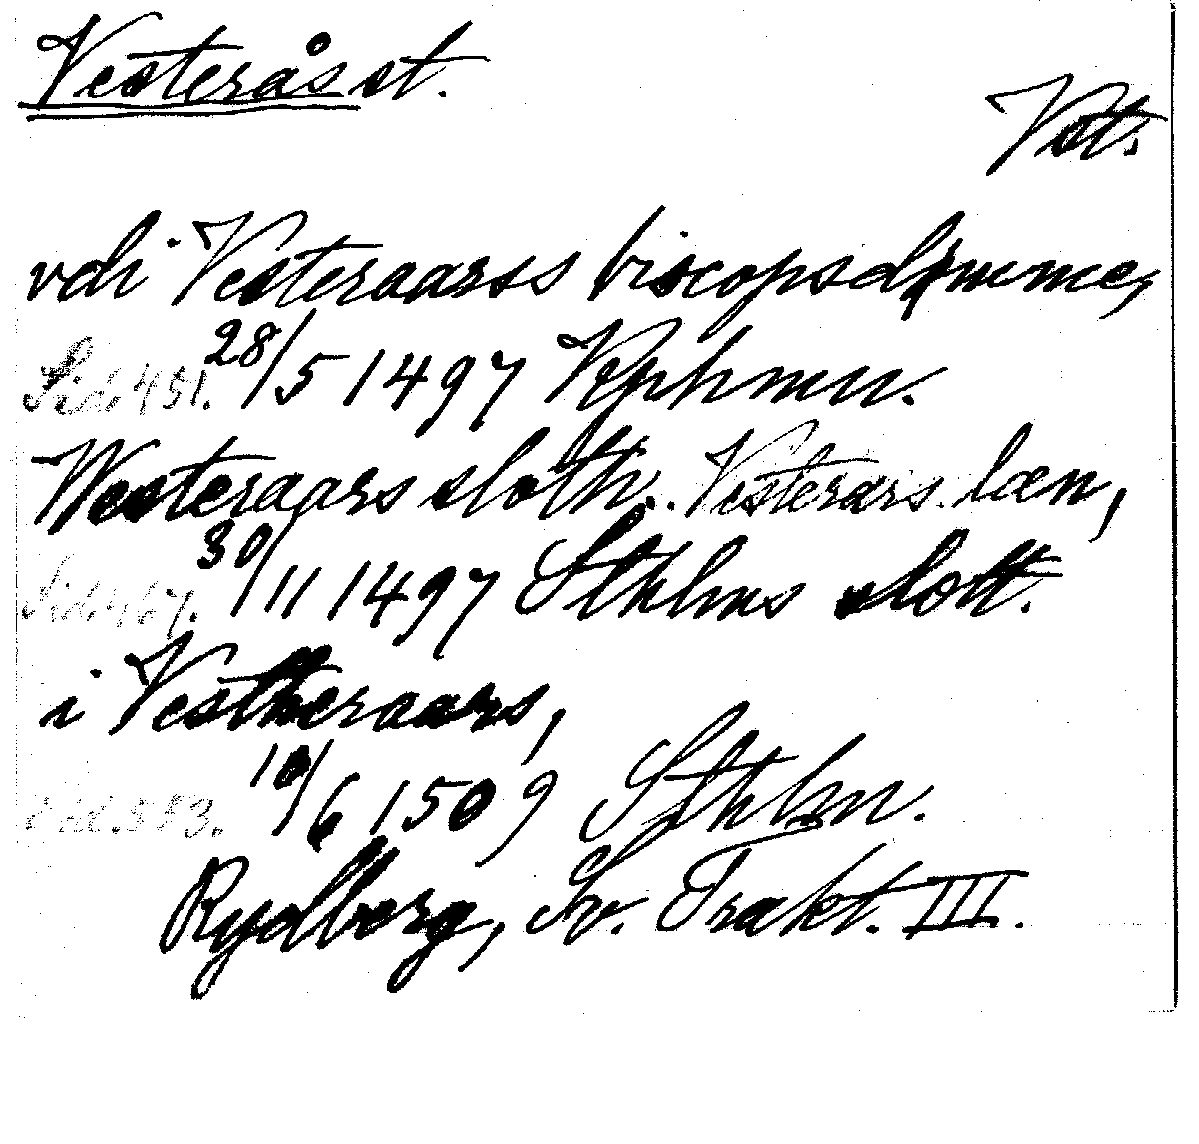 Vesterås st.
Vst.
vdi Vesteraarss biscopsdømme,
Sid 451. 28/5 1497 Kphmn.
Westeraars sloth. Vesterars læn,
Sid. 467. 30/11 1497 Sthlms slott.
i Vestheraars,
Sid. 583. 10/6 1509 Sthlm.
Rydberg, Sv. Trakt. III.